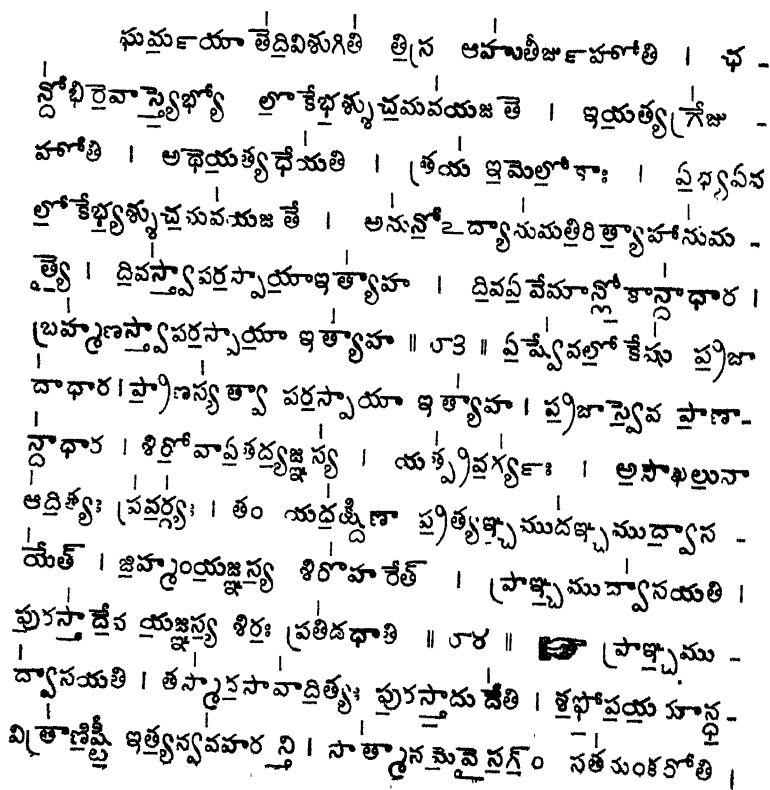 ఘర్మ యా తే దివి శుగితి తిస్ర ఆహుతీర్జుహోతి । ఛ -
న్దోభిరేవాస్యైభ్యో లోకేభ్యశ్శుచమవయజతే । ఇయత్యగ్రేజు -
హోతి । అథేయత్యథేయతి । త్రయ ఇమేలోకాః । ఏభ్యఏవ
లోకేభ్యశ్శుచమవయజతే । అనునోఽద్యానుమతిరిత్యాహానుమ -
త్యై । దివస్త్వాపరస్పాయాఇత్యాహ । దివఏవేమాన్లోకాన్దాధార ।
బ్రహ్మణస్త్వాపరస్పాయా ఇత్యాహ ॥ ౧౩ ॥ ఏష్వేవలోకేషు ప్రజా
దాధార। ప్రాణస్యత్వా పరస్పాయా ఇత్యాహ । ప్రజాస్వేవ ప్రాణా-
న్దాధార । శిరోవాఏతద్యజ్ఞస్య । యత్ప్రవర్గ్యః । అసౌఖలువా
ఆదిత్యః ప్రవర్గ్యః । తం యద్దక్షిణా ప్రత్యఞ్చముదఞ్చముద్వాస -
యేత్ । జిహ్మంయజ్ఞస్య శిరోహరేత్ । ప్రాఞ్చముద్వాసయతి ।
పురస్తాదేవ యజ్ఞస్య శిరః ప్రతిదధాతి ॥ ౧౪ ॥ ☞ ప్రాఞ్చము -
ద్వాసయతి । తస్మాదసావాదిత్యః పురస్తాదుదేతి । శఫోపయమాన్ధ -
విత్రాణిధృష్టీ ఇత్యన్వవహరన్తి । సాత్మానమేవైనగ్ం సతనుంకరోతి ।